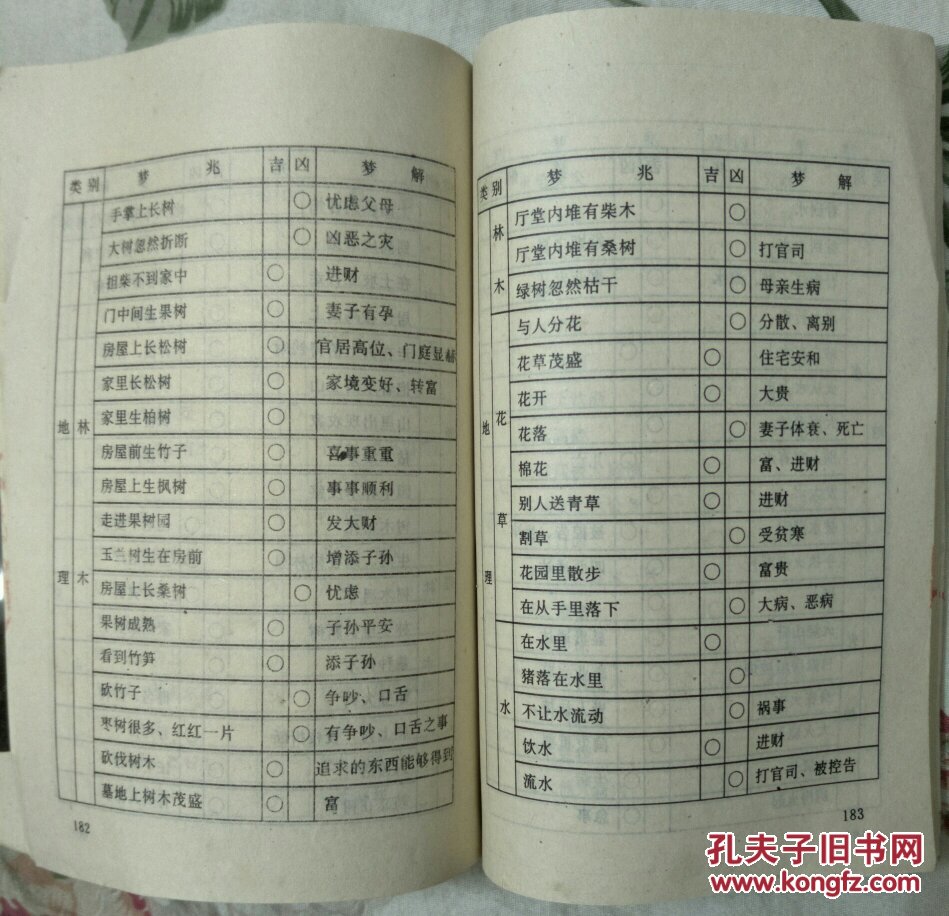 类别 梦兆 吉 凶 梦解
地理 林木
手掌上长树 ○ 忧虑父母
大树忽然折断 ○ 凶恶之灾
担柴不到家中 ○ 进财
门中间生果树 ○ 妻子有孕
房屋上长松树 ○ 官居高位、门庭显
家里长松树 ○ 家境变好、转富
家里生柏树 ○
房屋前生竹子 ○ 喜事重重
房屋上生枫树 ○ 事事顺利
走进果树园 ○ 发大财
玉兰树生在房前 ○ 增添子孙
房屋上长桑树 ○ 忧虑
果树成熟 ○ 子孙平安
看到竹笋 ○ 添子孙
砍竹子 ○ 争吵、口舌
枣树很多、红红一片 ○ 有争吵、口舌之事
砍伐树木 ○ 追求的东西能够得到
墓地上树木茂盛 ○ 富
182
类别 梦兆 吉 凶 梦解
地理
林木
厅堂内堆有柴木 ○
厅堂内堆有桑树 ○ 打官司
绿树忽然枯干 ○ 母亲生病
花草
与人分花 ○ 分散、离别
花草茂盛 ○ 住宅安和
花开 ○ 大贵
花落 ○ 妻子体衰、死亡
棉花 ○ 富、进财
别人送青草 ○ 进财
割草 ○ 受贫寒
花园里散步 ○ 富贵
在从手里落下 ○ 大病、恶病
水
在水里 ○
猪落在水里 ○
不让水流动 ○ 祸事
饮水 ○ 进财
流水 ○ 打官司、被控告
183
孔夫子旧书网
www.kongfz.com